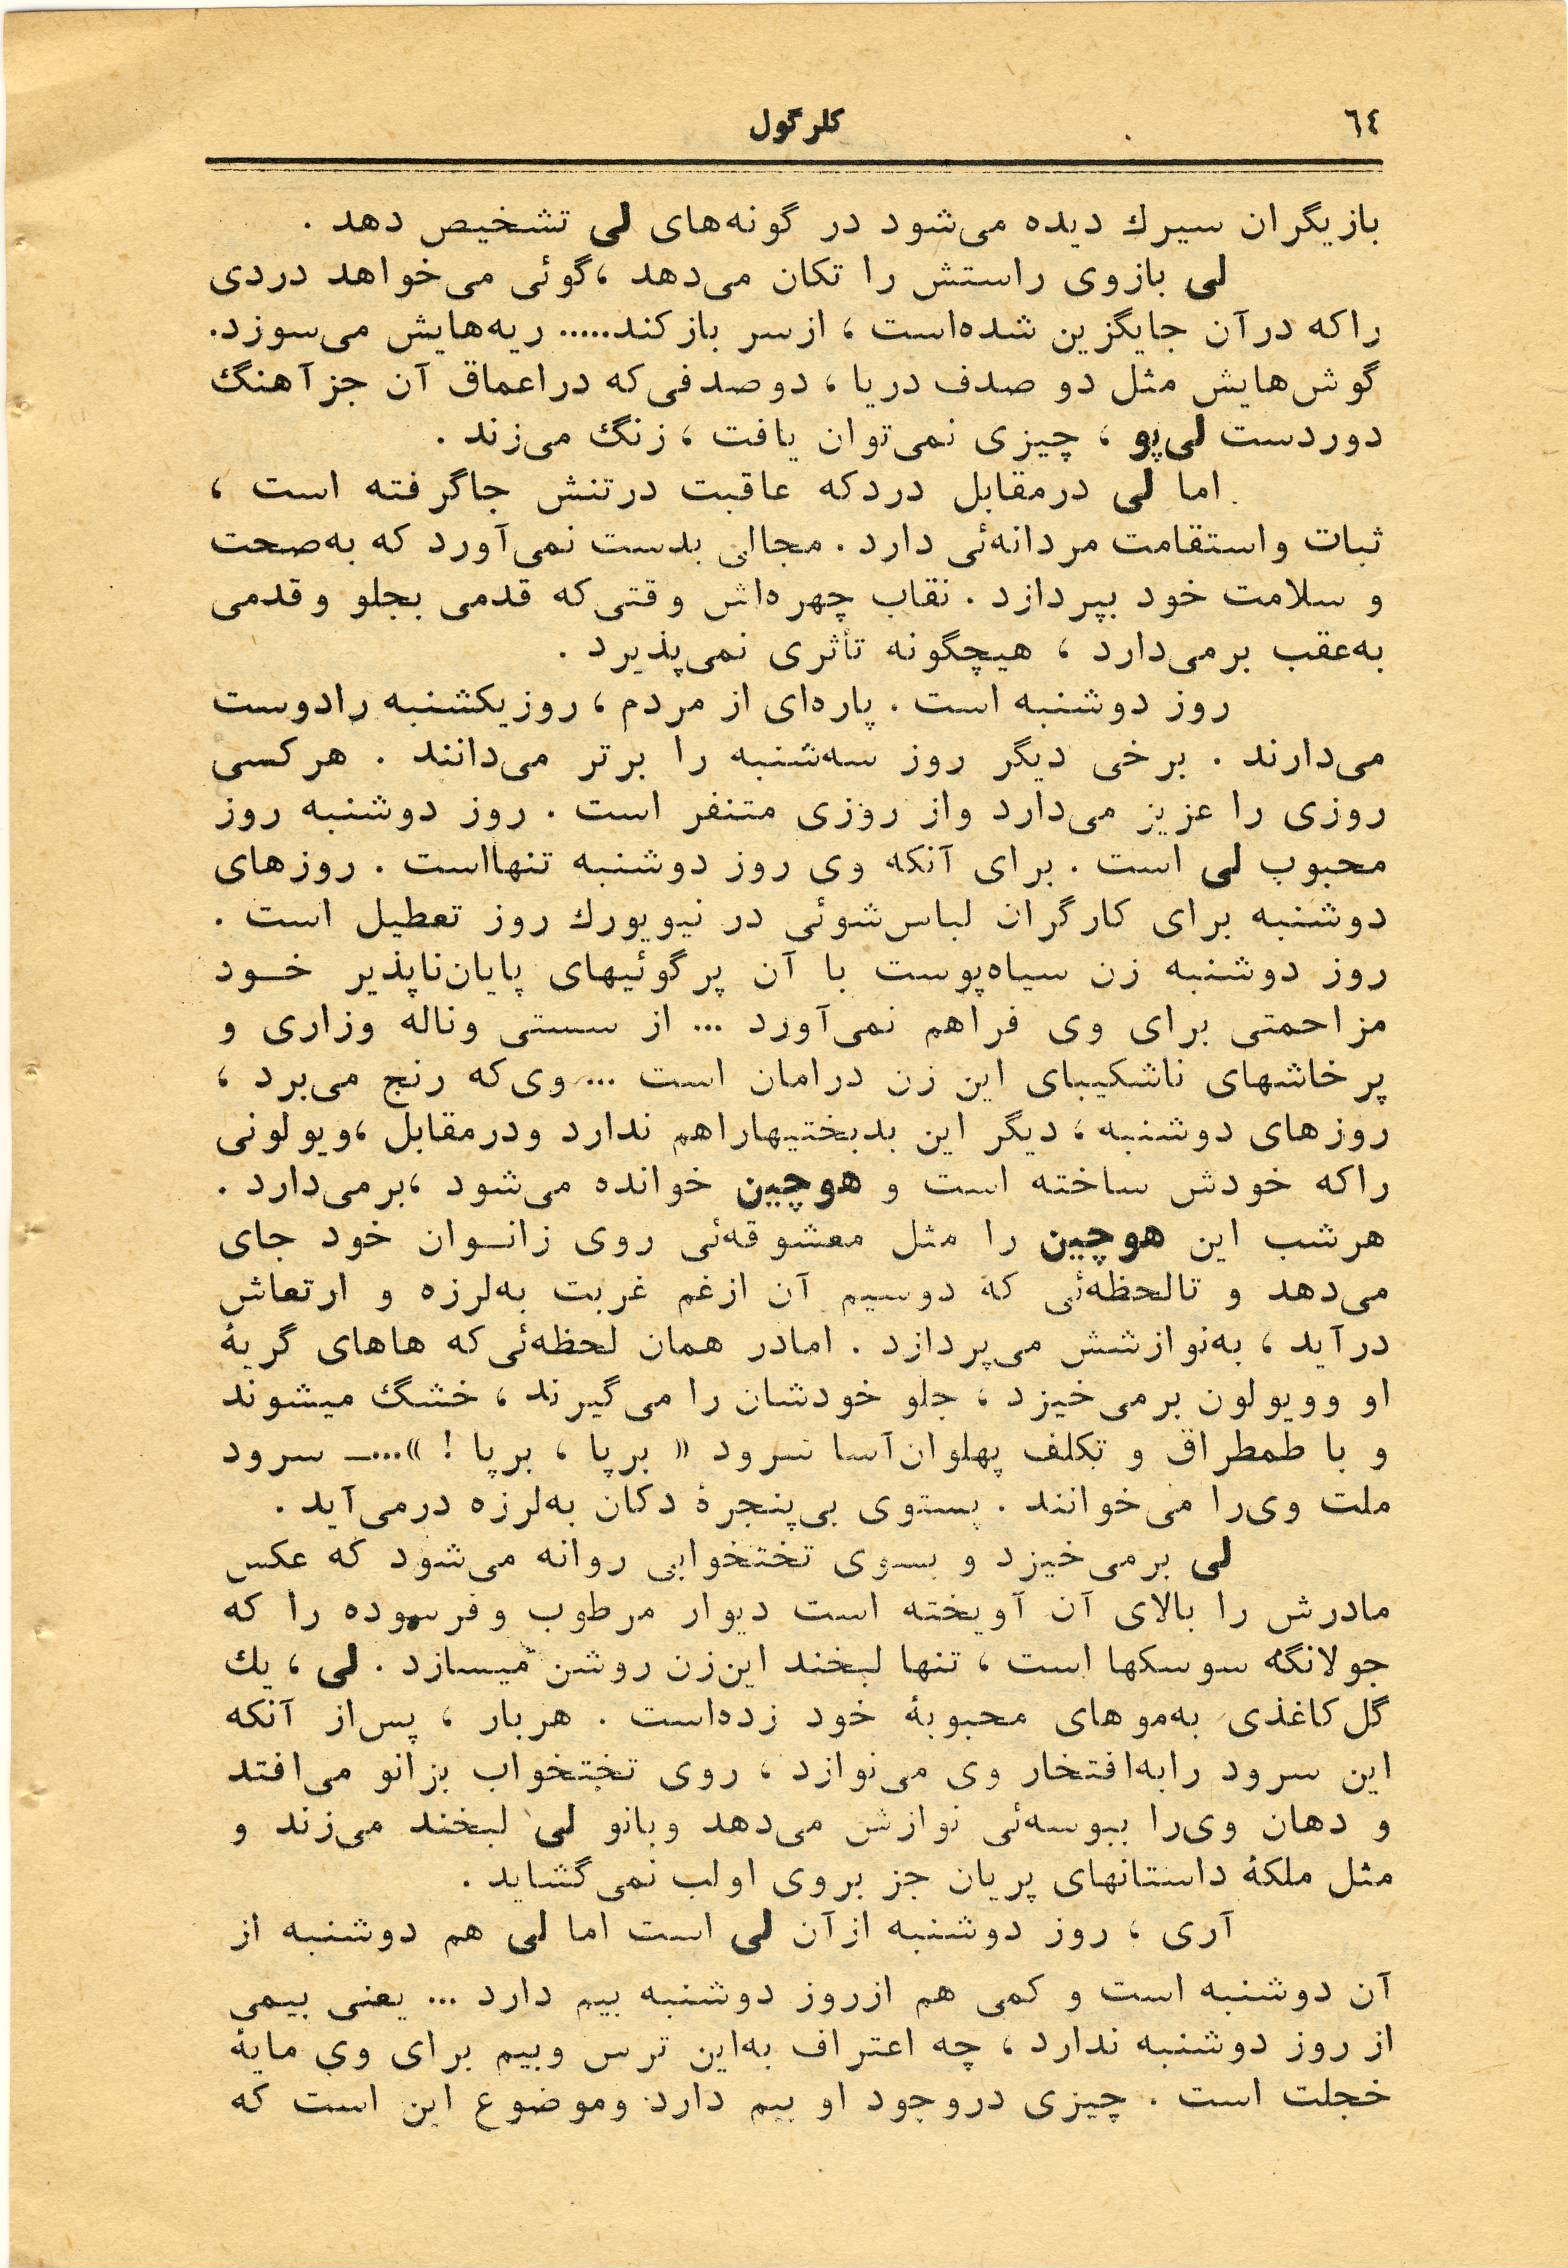 ٦٤
کلرگول
بازیگران سیرك دیده می‌شود در گونه‌های لی تشخیص دهد .
لی بازوی راستش را تکان می‌دهد ،گوئی می‌خواهد دردی
راکه درآن جایگزین شده‌است ، ازسر بازکند..... ریه‌هایش می‌سوزد.
گوش‌هایش مثل دو صدف دریا ، دوصدفی‌که دراعماق آن جزآهنگ
دوردست لی‌پو ، چیزی نمی‌توان یافت ، زنگ می‌زند .
اما لی درمقابل دردکه عاقبت درتنش جاگرفته است ،
ثبات واستقامت مردانه‌ئی دارد . مجالی بدست نمی‌آورد که به‌صحت
و سلامت خود بپردازد . نقاب چهره‌اش وقتی‌که قدمی بجلو وقدمی
به‌عقب برمی‌دارد ، هیچگونه تأثری نمی‌پذیرد .
روز دوشنبه است . پاره‌ای از مردم ، روزیکشنبه رادوست
می‌دارند . برخی دیگر روز سه‌شنبه را برتر می‌دانند . هرکسی
روزی را عزیز می‌دارد واز روزی متنفر است . روز دوشنبه روز
محبوب لی است . برای آنکه وی روز دوشنبه تنهااست . روزهای
دوشنبه برای کارگران لباس‌شوئی در نیویورك روز تعطیل است .
روز دوشنبه زن سیاه‌پوست با آن پرگوئیهای پایان‌ناپذیر خـود
مزاحمتی برای وی فراهم نمی‌آورد ... از سستی وناله وزاری و
پرخاشهای ناشکیبای این زن درامان است ... وی‌که رنج می‌برد ،
روزهای دوشنبه ، دیگر این بدبختیهاراهم ندارد ودرمقابل ،ویولونی
راکه خودش ساخته است و هوچین خوانده می‌شود ،برمی‌دارد .
هرشب این هوچین را مثل معشوقه‌ئی روی زانـوان خود جای
می‌دهد و تالحظه‌ئی که دوسیم آن ازغم غربت به‌لرزه و ارتعاش
درآید ، به‌نوازشش می‌پردازد . امادر همان لحظه‌ئی‌که هاهای گریهٔ
او وویولون برمی‌خیزد ، جلو خودشان را می‌گیرند ، خشگ میشوند
و با طمطراق و تکلف پهلوان‌آسا سرود « برپا ، برپا ! »...ـ سرود
ملت وی‌را می‌خوانند . پستوی بی‌پنجرهٔ دکان به‌لرزه درمی‌آید .
لی برمی‌خیزد و بسوی تختخوابی روانه می‌شود که عکس
مادرش را بالای آن آویخته است دیوار مرطوب وفرسوده را که
جولانگه سوسکها است ، تنها لبخند این‌زن روشن میسازد . لی ، یك
گل‌کاغذی به‌موهای محبوبهٔ خود زده‌است . هربار ، پس‌از آنکه
این سرود رابه‌افتخار وی می‌نوازد ، روی تختخواب بزانو می‌افتد
و دهان وی‌را ببوسه‌ئی نوازش می‌دهد وبانو لی لبخند می‌زند و
مثل ملکهٔ داستانهای پریان جز بروی اولب نمی‌گشاید .
آری ، روز دوشنبه ازآن لی است اما لی هم دوشنبه از
آن دوشنبه است و کمی هم ازروز دوشنبه بیم دارد ... یعنی بیمی
از روز دوشنبه ندارد ، چه اعتراف به‌این ترس وبیم برای وی مایهٔ
خجلت است . چیزی دروجود او بیم دارد وموضوع این است که